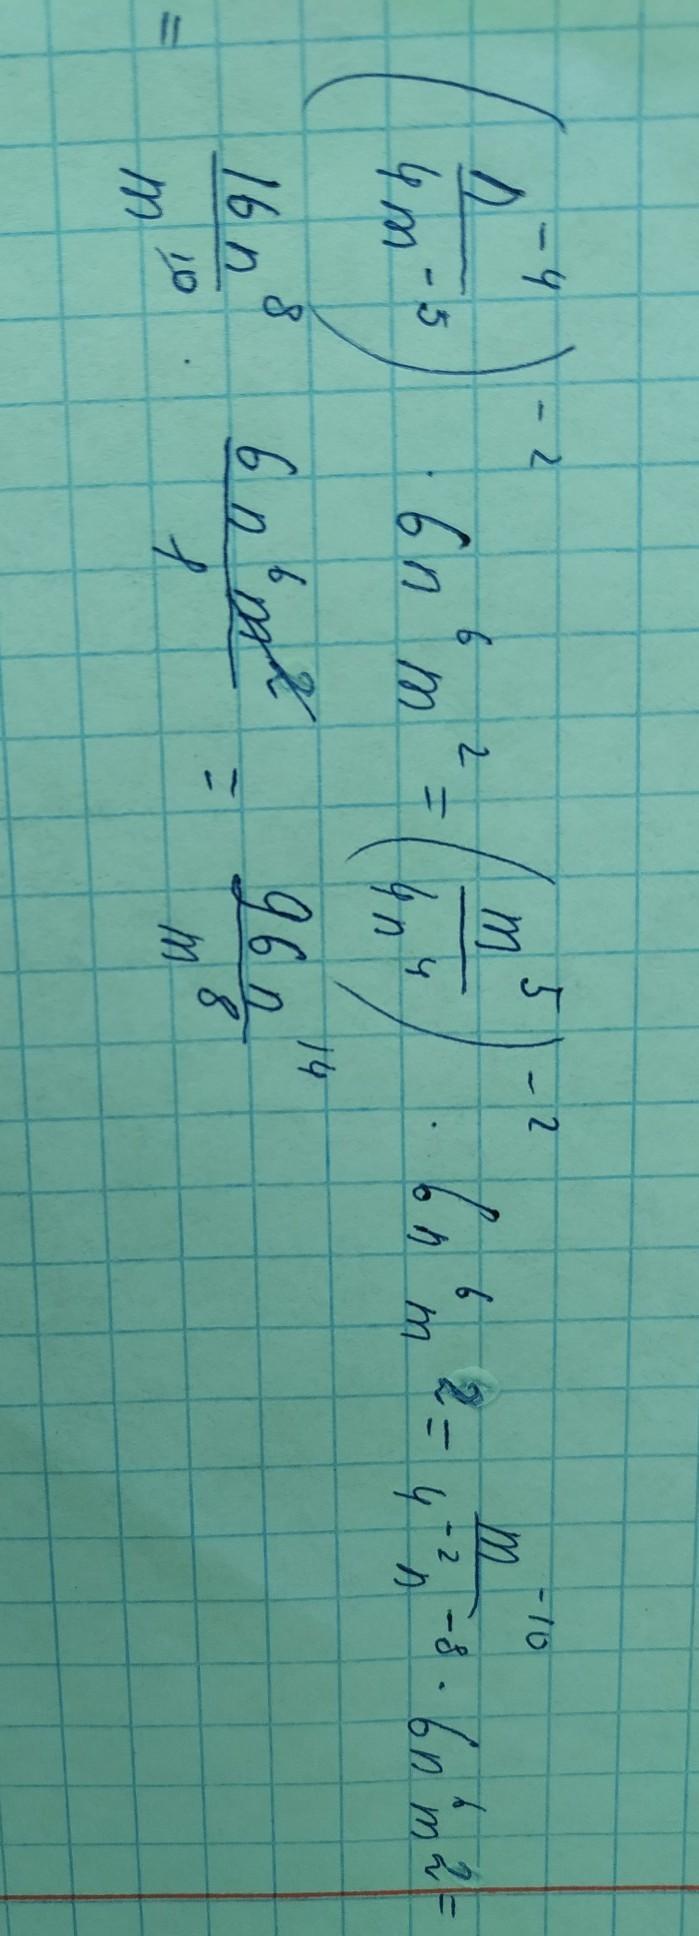 (n⁻⁴/4m⁻⁵)⁻² · 6n⁶m² = (m⁵/4n⁴)⁻² · 6n⁶m² = m⁻¹⁰/4⁻²n⁻⁸ · 6n⁶m² =
= 16n⁸/m¹⁰ · 6n⁶m²/1 = 96n¹⁴/m⁸